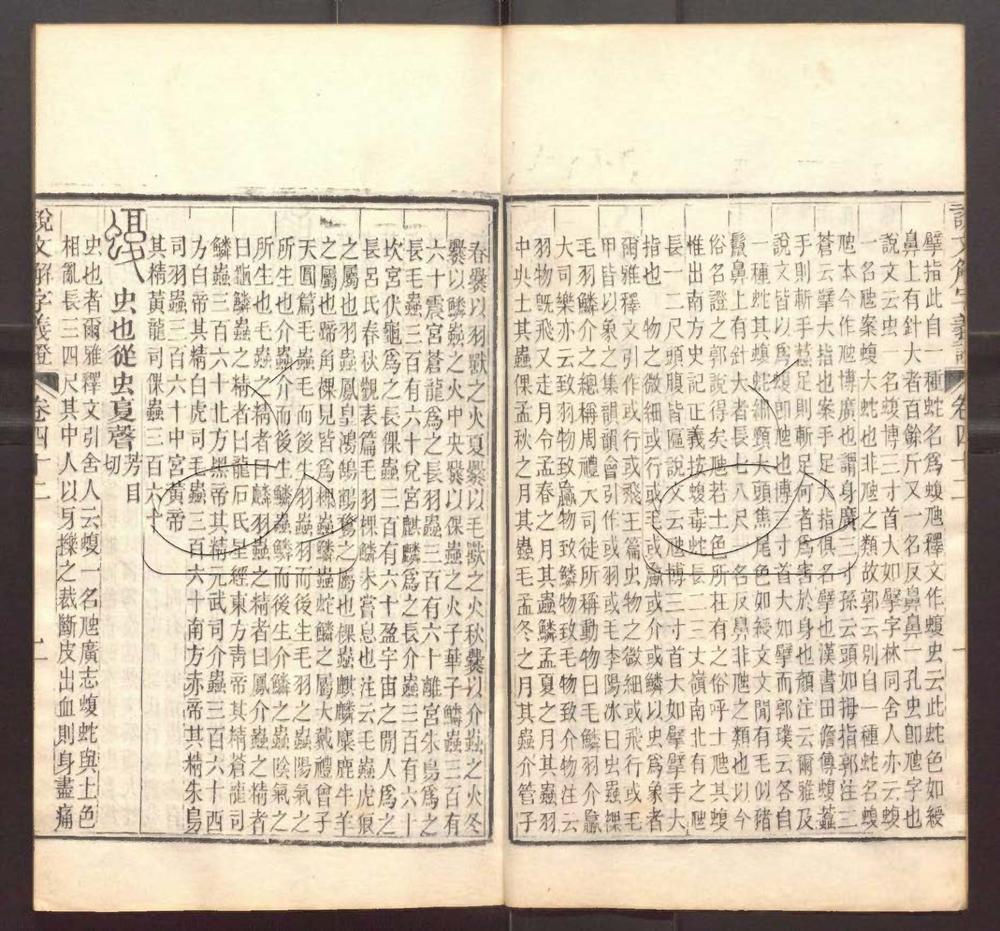 擘指此自一種蛇名爲蝮虺釋文作蝮虫云此蛇色如綬
鼻上有針大者百餘斤又一名反鼻鼻一孔虫卽虺字也
說文云虫一名蝮博三寸首大如擘字林同舍人亦云蝮
一名虺案蝮大蛇也非虺之類故郭云別自一種蛇名蝮
虺本今作虺博廣也謂身廣三寸孫云頭如拇指郭注三
蒼云擘大指也案手足大指俱名擘也漢書田儋傳蝮蠚
手則斬手蠚足則斬足何者爲害於身也顏注云爾雅及
說文皆以爲蝮卽虺也博三寸首大如擘而郭璞云各自
一種蛇其蝮蛇細頸大頭焦尾色如綬文文閒有毛似豬
鬣鼻上有針大者長七八尺一名反鼻非虺之類也以今
俗名證之郭說得矣虺若土色所在有之俗呼土虺其蝮
惟出南方史記正義按蝮毒蛇長二三丈嶺南北有之虺
長一二尺頭腹皆匾說文云虺博三寸首大如擘擘手大
指也　物之微細或行或毛或蠃或介或鱗以虫爲象者
爾雅釋文引作或行或飛王篇虫物之微細或飛行或毛
甲皆以象之集韻韻會引作或羽或毛李陽冰曰虫裸
毛羽鱗介之總稱周禮大司徒所稱動物曰毛鱗羽介蠃
大司樂亦云致羽物致蠃物致鱗物致毛物致介物注云
羽物旣飛又走月令孟春之月其蟲鱗孟夏之月其蟲羽
中央土其蟲倮孟秋之月其蟲毛孟冬之月其蟲介管子
說文解字義證　卷四十二
春爨以羽獸之火夏爨以毛獸之火秋爨以介蟲之火冬
爨以鱗蟲之火中央爨以倮蟲之火子華子鱗蟲三百有
六十震宮蒼龍爲之長羽蟲三百有六十離宮朱鳥爲之
長毛蟲三百有六十兌宮麒麟爲之長介蟲三百有六十
坎宮伏龜爲之長倮蟲三百有六十盈宇宙之閒人爲之
長呂氏春秋觀表篇毛羽裸鱗未嘗息也注云毛蟲虎狼
之屬也羽蟲鳳皇鴻鵠鶴鶩之屬也倮蟲麒麟麋鹿牛羊
之屬也蹄角裸見皆爲裸蟲鱗蟲蛇鱗之屬大戴禮曾子
天圓篇毛蟲毛而後生羽蟲羽而後生毛羽之蟲陽氣之
所生也介蟲介而後生鱗蟲鱗而後生介鱗之蟲陰氣之
所生也毛蟲之精者曰麟羽蟲之精者曰鳳介蟲之精者
曰龜鱗蟲之精者曰龍石氏星經東方青帝其精蒼龍司
鱗蟲三百六十北方黑帝其精元武司介蟲三百六十西
方白帝其精白虎司毛蟲三百六十南方赤帝其精朱鳥
司羽蟲三百六十中宮黃帝
其精黃龍司倮蟲三百六十
蝮　虫也從虫夏聲　芳目切
虫也者爾雅釋文引舍人云蝮一名虺廣志蝮蛇與土色
相亂長三四尺其中人以牙擽之裁斷皮出血則身盡痛
說文解字義證　卷四十二　二